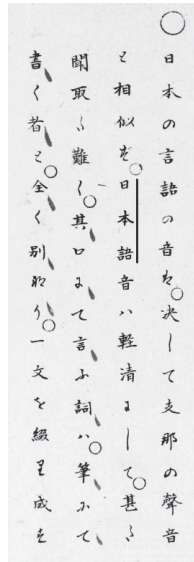 ○日本の言語の音は決して支那の聲音
と相似ず○日本語音ハ軽清にして○甚だ
聞取り難く○其口にて言ふ詞ハ○筆にて
書く者と○全く別なり○一文を綴里成す